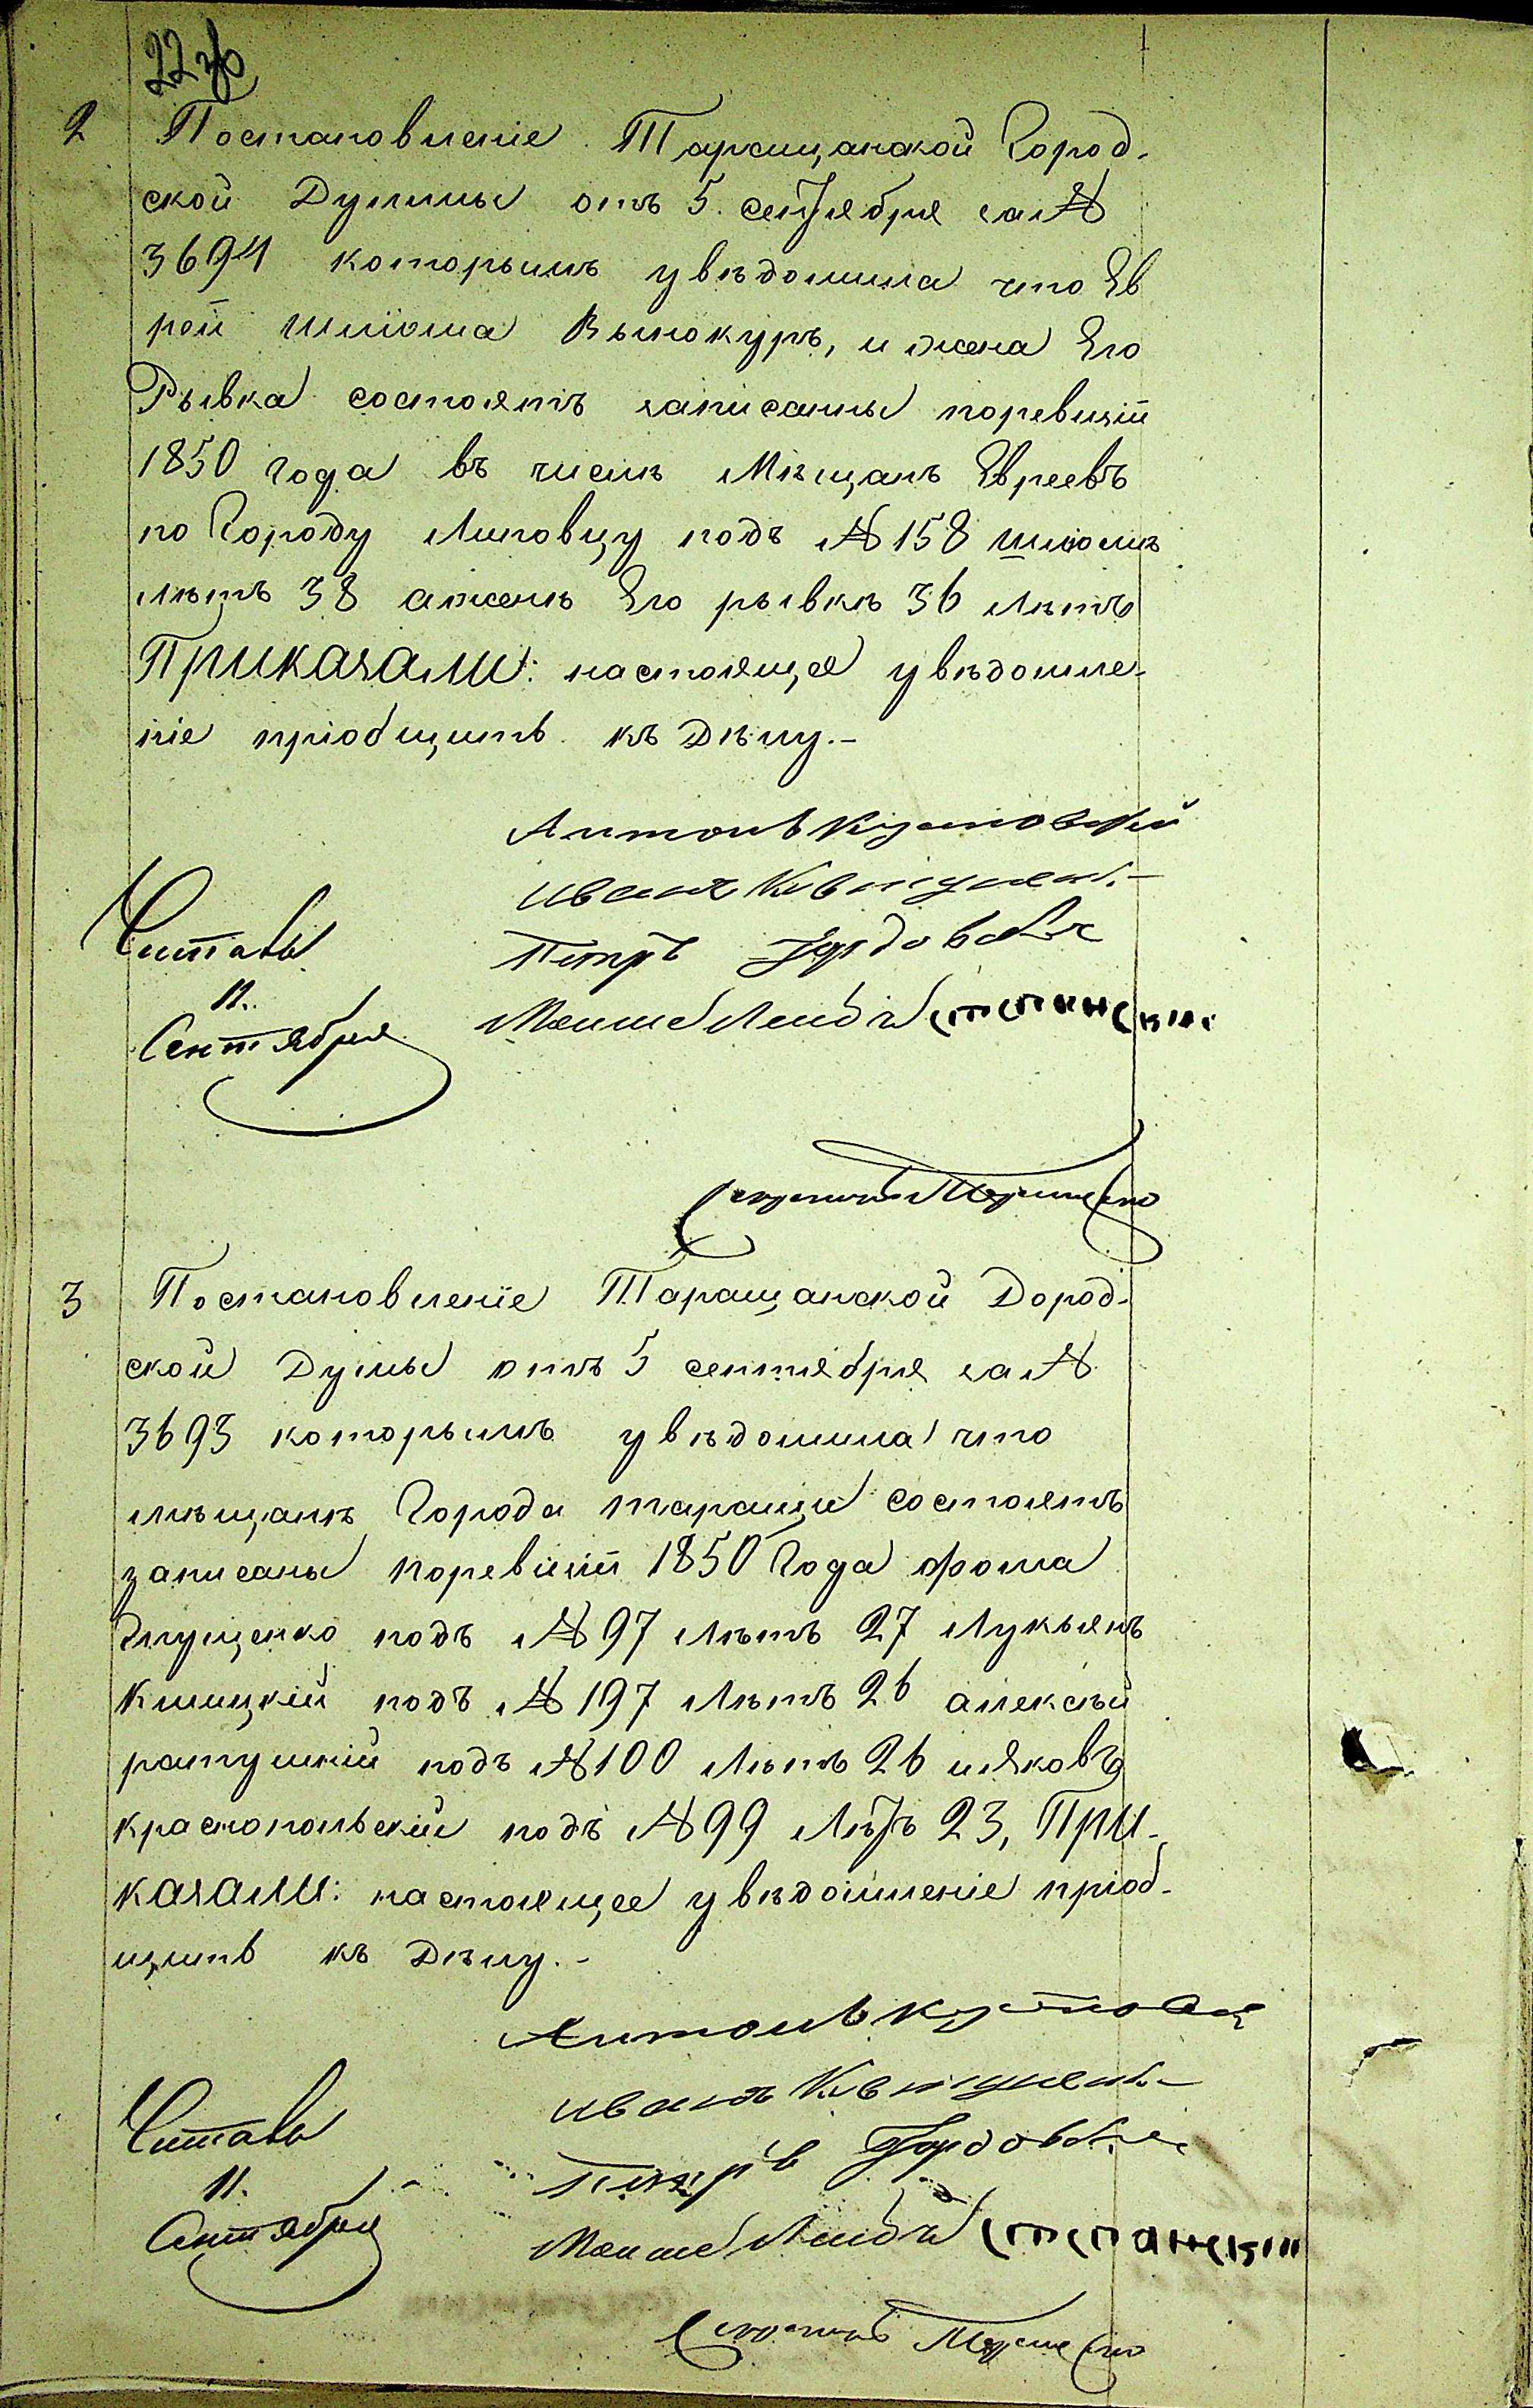 22 об
2 Постановленіе Таращанской Город-
ской Думмы отъ 5. сентября за №
3694 которымъ увѣдомила что Ев
рей Шліома Вынокуръ, и жена Его
Рывка состоятъ записанны поревизіи
1850 года въ числѣ Мѣщанъ Евреевъ
по Городу Липовцу подъ № 158 шліомѣ
лѣтъ 38 аженѣ Его рывкѣ 36 лѣтъ
Приказали: настояще увѣдомле-
ніе пріобщить къ Дѣлу.-
Антонъ Кутовский
иванъ
Петръ
Мошко Лейба Степански
Читалъ
11.
Сентября
3 Постановленіе Таращанской Город-
ской Думы отъ 5 сентября за №
3693 которымъ увѣдомила что
мѣщанѣ Города таращи состоятъ
записаны поревизіи 1850 Года фома
Глущенко подъ № 97 лѣтъ 27 Лукьянъ
Клицкій подъ № 197 лѣтъ 26 алексѣй
ратушній подъ № 100 лѣтъ 26 ияковъ
краснопольскій подъ № 99 лѣтъ 23, При-
казали: настоящее увѣдомленіе пріоб-
щить къ Дѣлу.-
Антонъ Кутовс
иванъ
Петръ
Мошко Лейба Степанскии
Читалъ
11.
Сентября